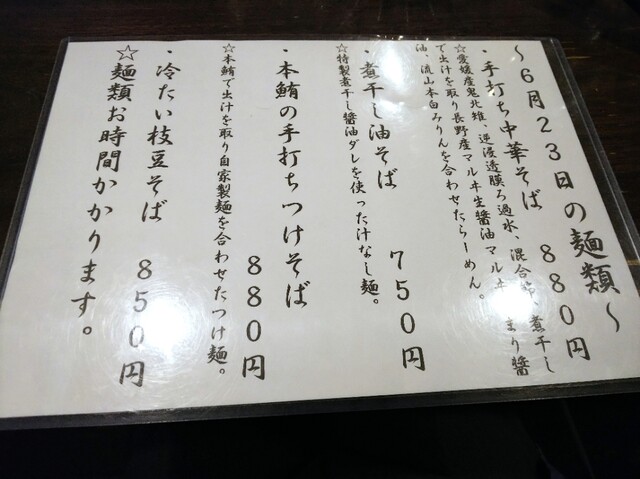 ~6月23日の麺類~
・手打ち中華そば 880円
☆愛媛産鬼北雉、逆浸透膜ろ過水、混合節、煮干し
で出汁を取り長野産マルヰ生醤油マルヰ まり醤
油、流山本白みりんを合わせたらーめん。
・煮干し油そば 750円
☆特製煮干し醤油ダレを使った汁なし麺。
・本鮪の手打ちつけそば
880円
☆本鮪で出汁を取り自家製麺を合わせたつけ麺。
・冷たい枝豆そば 850円
☆麺類お時間かかります。